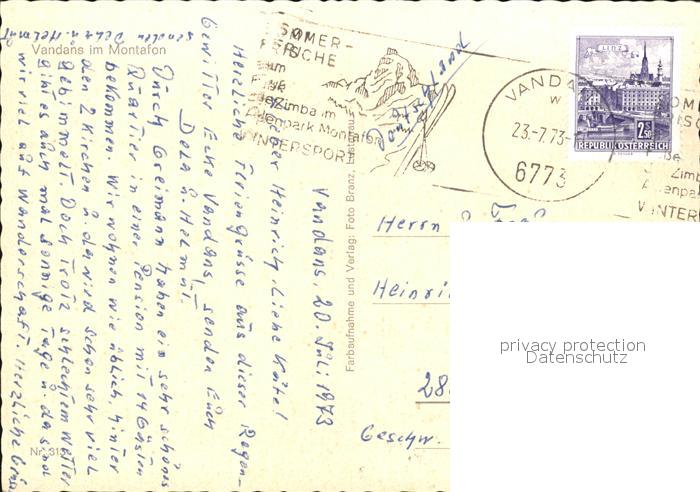 Vandans im Montafon
Vandans, 20. Juli 1973
Lieber Heinrich, Liebe Käte!
Herzliche Feriengrüsse aus dieser Regen-
Gewitter Ecke Vandans, senden Euch
Dela u. Helmut.
Durch haben ein sehr schönes
Quartier in einer Pension mit 14 Gästen
bekommen. Wir wohnen wie üblich, hinter
den 2 Kirchen u. da wird schon sehr viel
gebimmelt. Doch trotz schlechtem Wetter
gibt es auch mal sonnige Tage u. da sind
wir viel auf Wanderschaft. Herzliche Grüs
senden Dela u. Helmut
Nr. 315
Farbaufnahme und Verlag: Foto Branz,
SOMMER-
FRISCHE
am
Fuße
der Zimba im
Alpenpark Montafon
WINTERSPORT
VANDA
w
23.-7.73-
6773
LINZ
2.50
REPUBLIK ÖSTERREICH
Zimb
Alpenpa
WINTER
Deutschland
Herrn
Heinri
28
Geschw.
privacy protection
Datenschutz